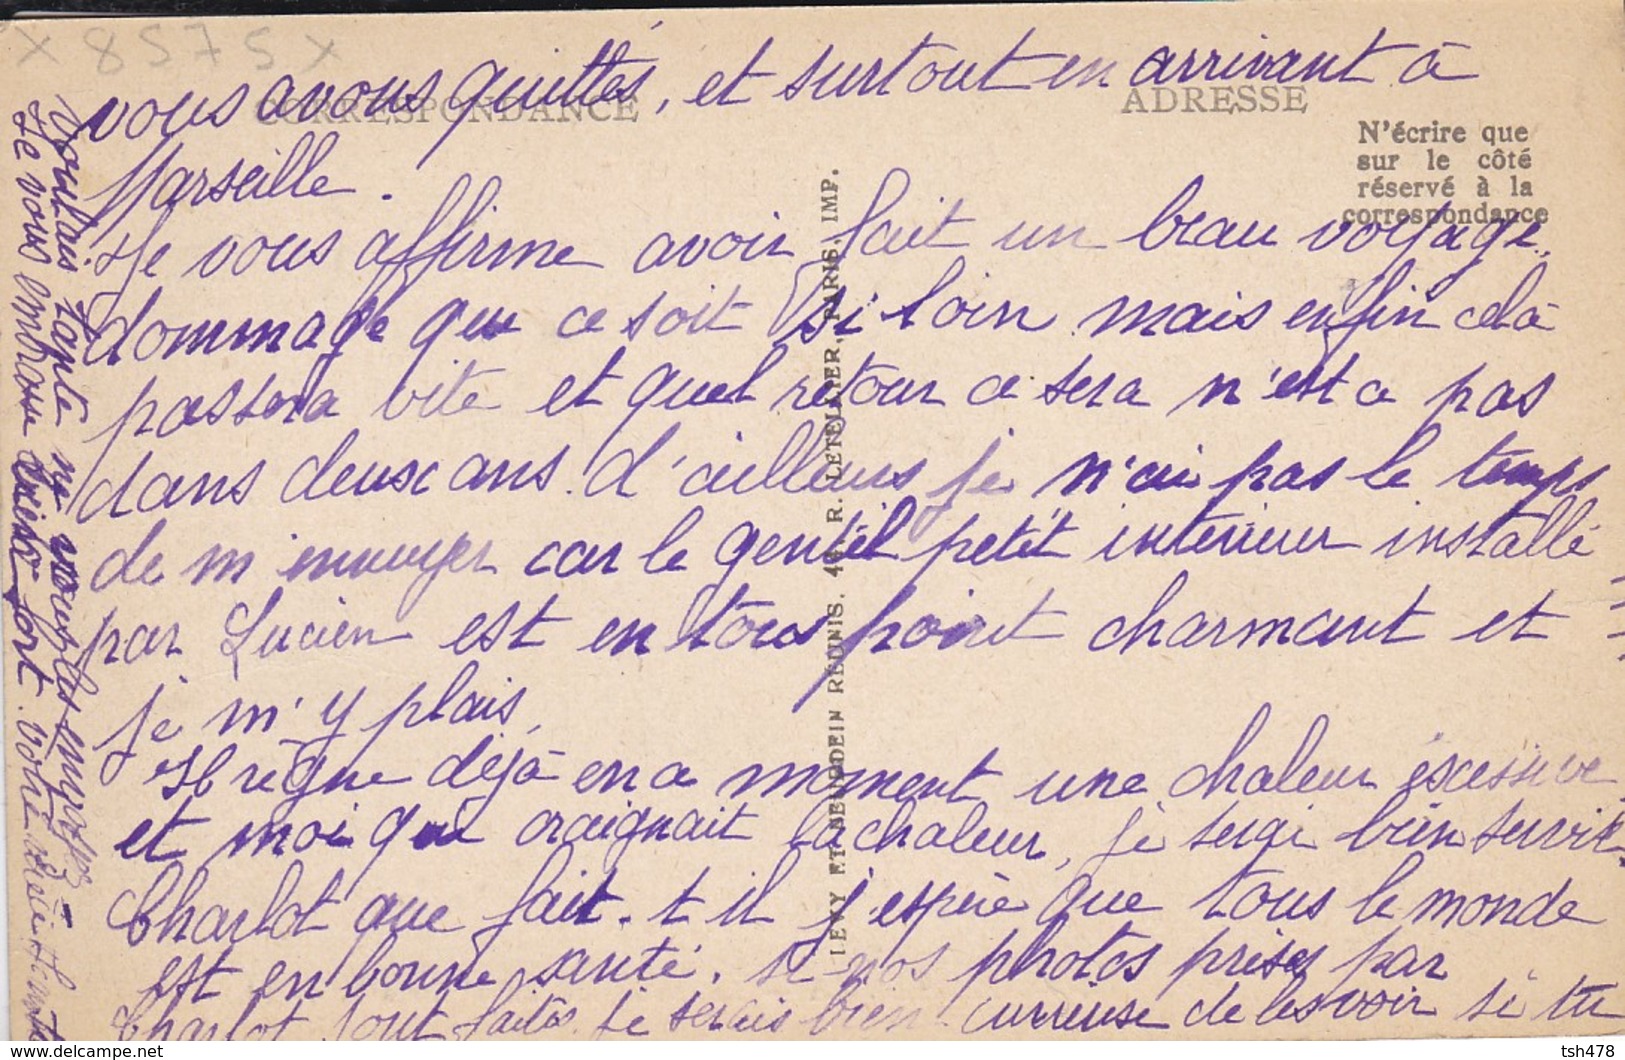 x 8575 x
CORRESPONDANCE
ADRESSE
N'écrire que
sur le côté
réservé à la
correspondance
vous avons quittés, et surtout en arrivant à
Marseille.
Je vous affirme avoir fait un beau voyage,
dommage que ce soit si loin mais enfin cela
passera vite et quel retour ce sera n'est ce pas
dans deux ans. d'ailleurs je n'ai pas le temps
de m'ennuyer car le gentil petit intérieur installé
par Lucien est en tous point charmant et
je m'y plais,
Il règne déjà en ce moment une chaleur excessive
et moi qui craignait la chaleur, je serai bien servie.
Charlot que fait-t il j'espère que tous le monde
est en bonne santé. Si nos photos prises par
Charlot sont faites je serais bien curieuse de les voir si tu
voulais tante ne
Je vous embrasse bien fort. Votre nièce
LEVY ET NEURDEIN RÉUNIS. 44, R. LETELLIER, PARIS. IMP.
tsh478